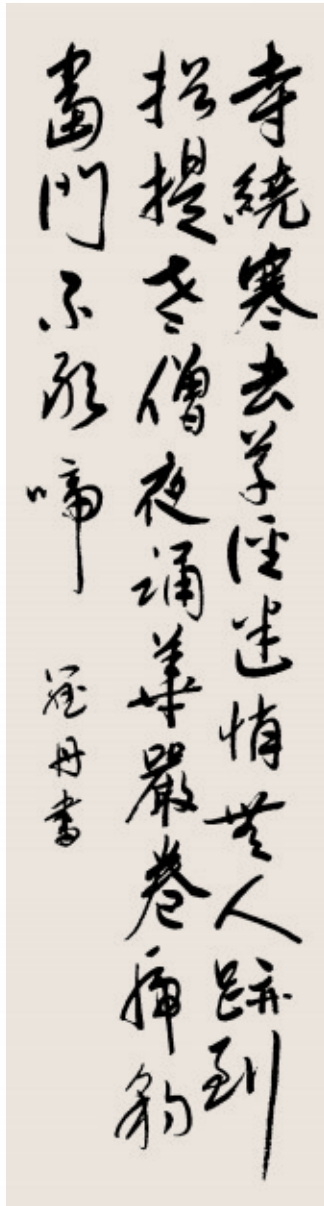 寺繞寒云草徑迷悄無人跡到
招提老僧夜誦華嚴卷虎豹
當門不敢啼 羅丹書